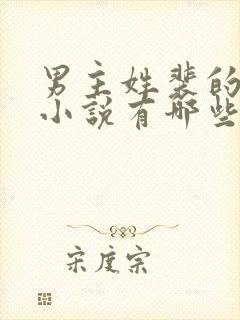 男主姓裴的
小说有哪些
宋度宗